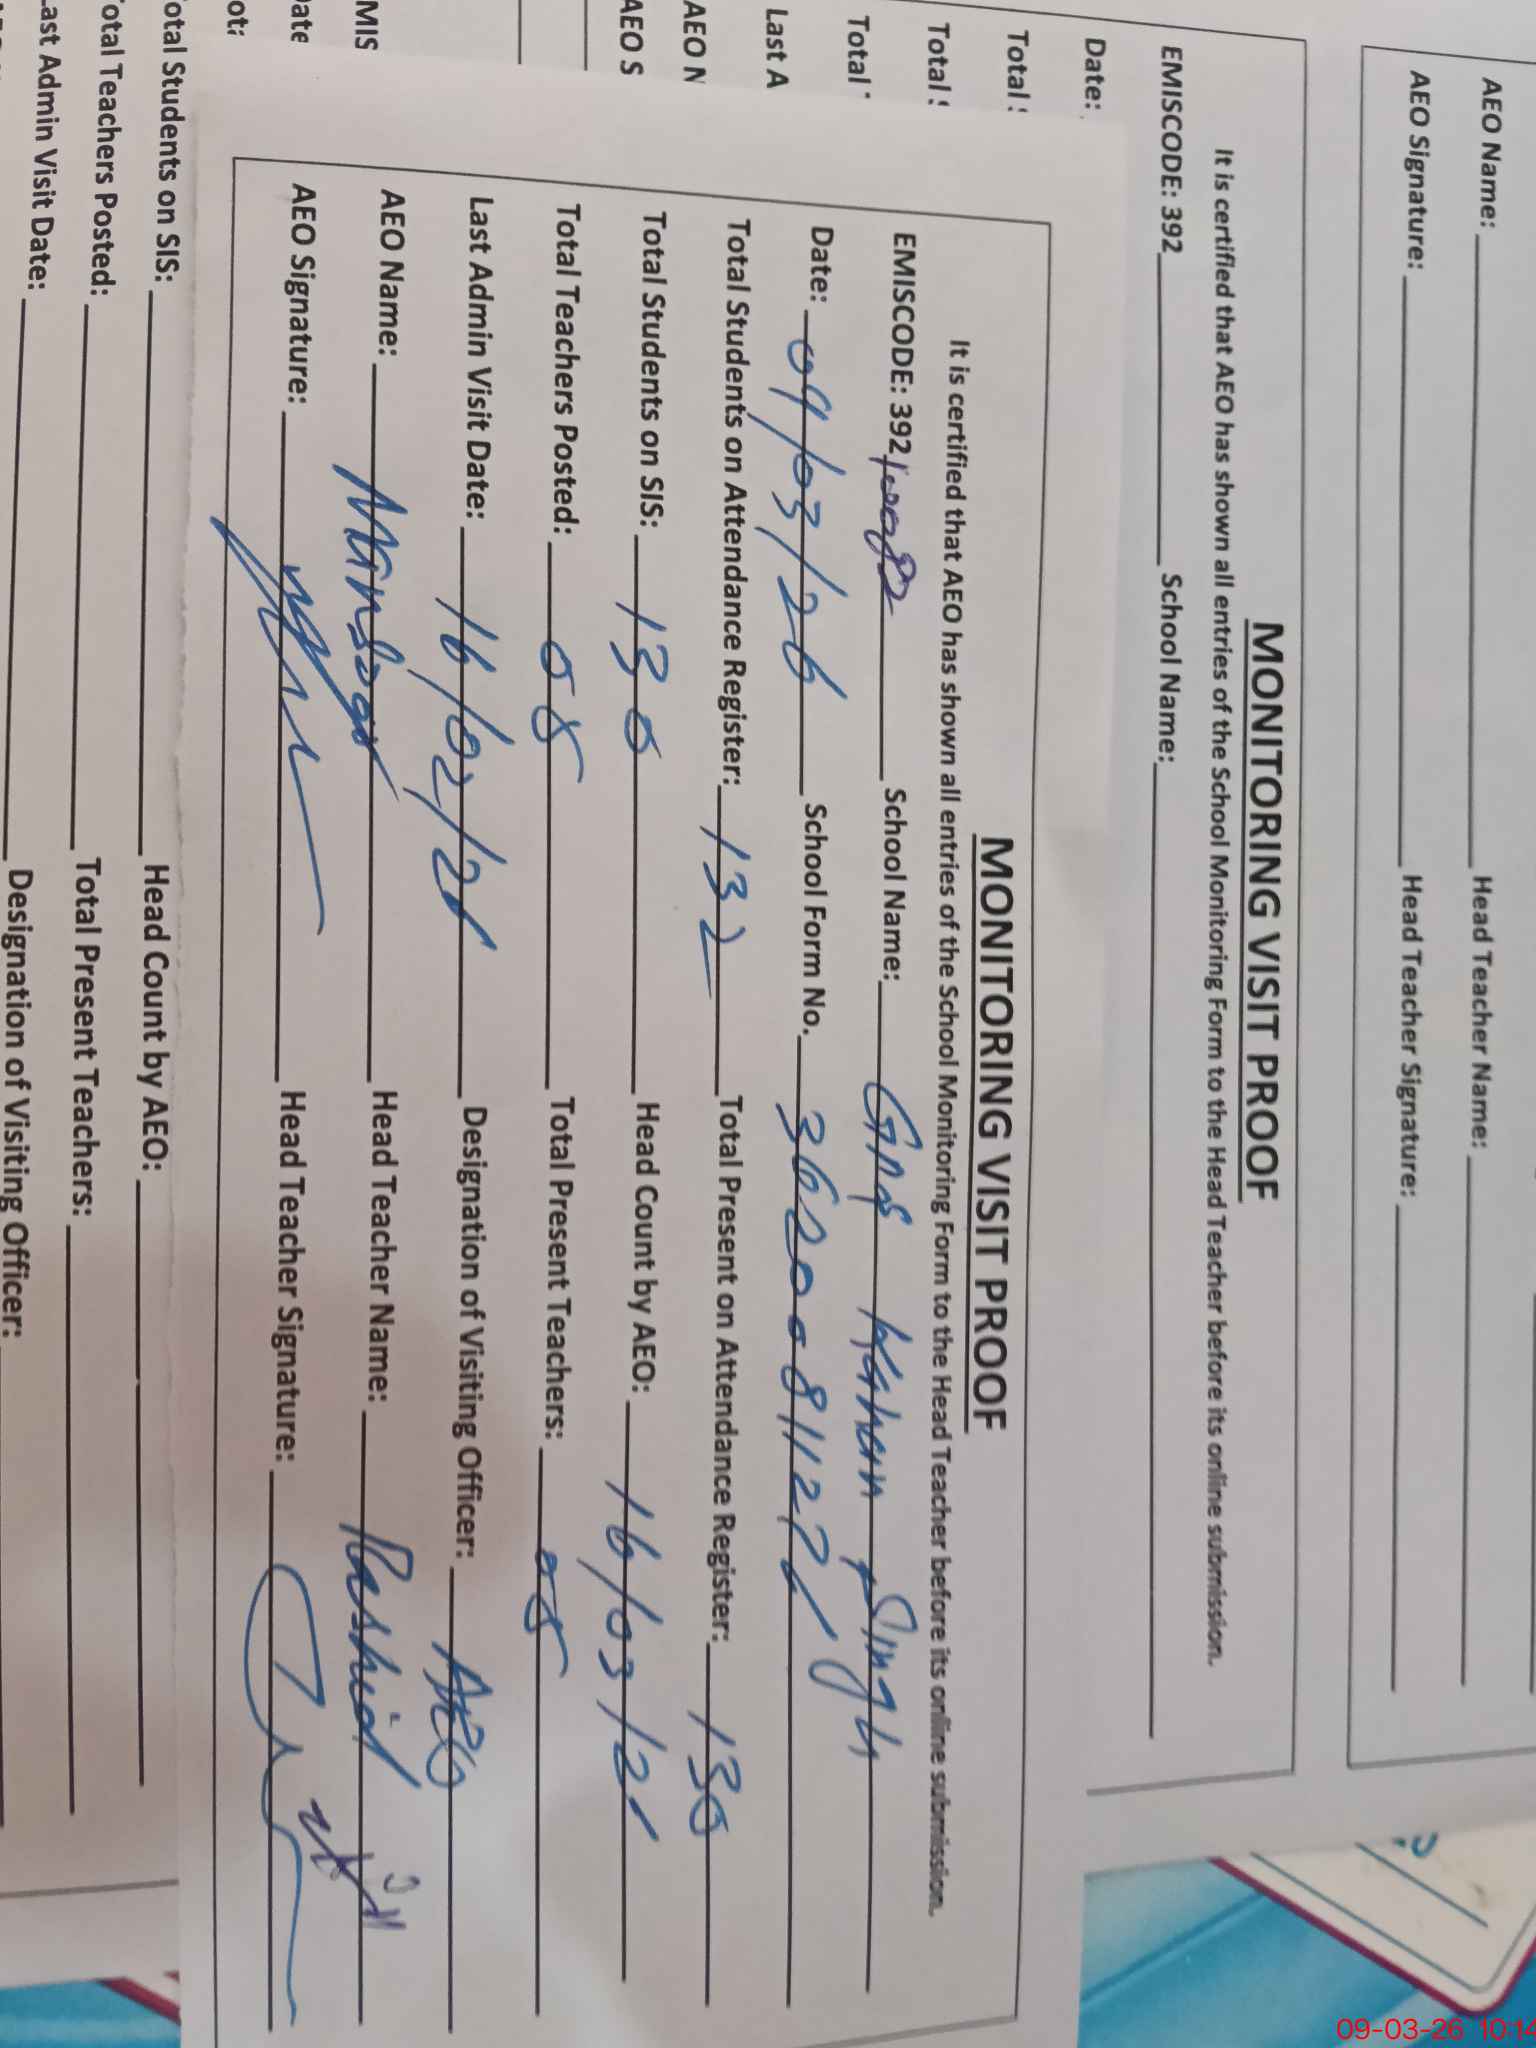 AEO Name:
Head Teacher Name:
AEO Signature:
Head Teacher Signature:
MONITORING VISIT PROOF
It is certified that AEO has shown all entries of the School Monitoring Form to the Head Teacher before its online submission.
EMISCODE: 392 School Name:
Date:
Total
Total
Total
Last A
AEO N
AEO S
MONITORING VISIT PROOF
It is certified that AEO has shown all entries of the School Monitoring Form to the Head Teacher before its online submission.
EMISCODE: 392 School Name: Singh
Date: 09/03/26 School Form No.
Total Students on Attendance Register: 132 Total Present on Attendance Register: 130
Total Students on SIS: 130 Head Count by AEO: 16/03/26
Total Teachers Posted: 05 Total Present Teachers: 05
Last Admin Visit Date: 16/02/26 Designation of Visiting Officer: AEO
AEO Name: Head Teacher Name: Rashid
AEO Signature: Head Teacher Signature:
Total Students on SIS: Head Count by AEO:
Total Teachers Posted: Total Present Teachers:
Last Admin Visit Date: Designation of Visiting Officer:
09-03-26 10:14